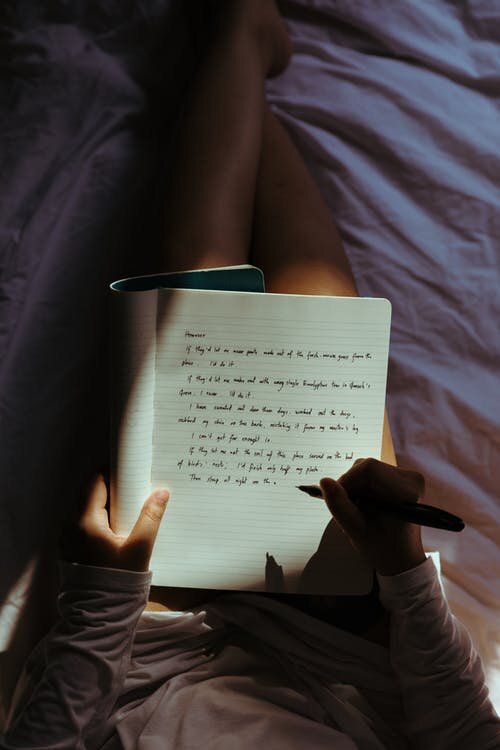 However
If they'd let me wear pants made out of the fresh-mown grass from the
place. I'd do it.
If they'd let me make out with every single Eucalyptus tree in Queenie's
Grove, I swear. I'd do it.
I have sweated out dew these days, worked out the days,
rubbed my skin on tree bark, mistaking it from my mother's leg
I can't get far enough in.
If they let me eat the soil of this place served on the bed
of birds' nests; I'd finish only half my plate.
Then sleep all night on the